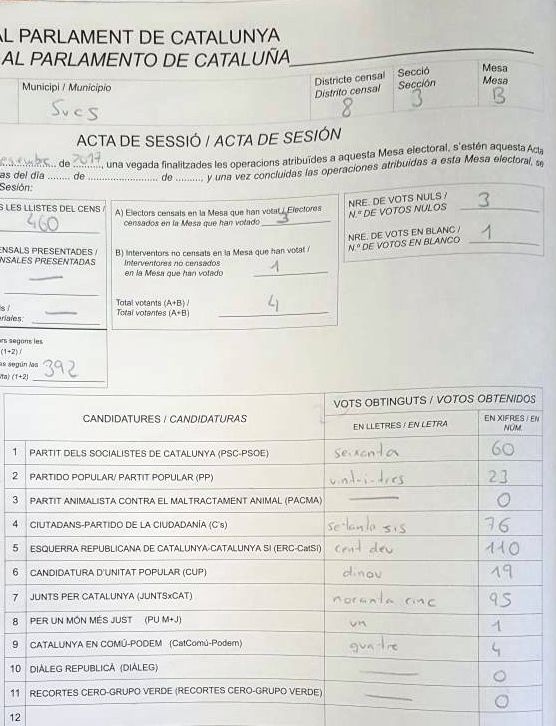 AL PARLAMENT DE CATALUNYA
AL PARLAMENTO DE CATALUÑA
Municipi / Municipio
Sucs
Districte censal
Distrito censal
8
Secció
Sección
3
Mesa
Mesa
B
ACTA DE SESSIÓ / ACTA DE SESIÓN
de 2017, una vegada finalitzades les operacions atribuïdes a aquesta Mesa electoral, s'estén aquesta Acta
as del día ........ de ........................ de ........., y una vez concluidas las operaciones atribuidas a esta Mesa electoral, se
Sesión:
S LES LLISTES DEL CENS /
460
ENSALS PRESENTADES /
NSALES PRESENTADAS
—
s /
riales: —
rs segons les
(1+2) /
as según las
ta) (1+2) 392
A) Electors censats en la Mesa que han votat / Electores
censados en la Mesa que han votado 3
B) Interventors no censats en la Mesa que han votat /
Interventores no censados
en la Mesa que han votado 1
Total votants (A+B) /
Total votantes (A+B) 4
NRE. DE VOTS NULS /
N.º DE VOTOS NULOS 3
NRE. DE VOTS EN BLANC /
N.º DE VOTOS EN BLANCO 1
CANDIDATURES / CANDIDATURAS
VOTS OBTINGUTS / VOTOS OBTENIDOS
EN LLETRES / EN LETRA
EN XIFRES / EN NÚM.
1 PARTIT DELS SOCIALISTES DE CATALUNYA (PSC-PSOE) seixanta 60
2 PARTIDO POPULAR/ PARTIT POPULAR (PP) vint-i-tres 23
3 PARTIT ANIMALISTA CONTRA EL MALTRACTAMENT ANIMAL (PACMA) — 0
4 CIUTADANS-PARTIDO DE LA CIUDADANÍA (C's) setanta sis 76
5 ESQUERRA REPUBLICANA DE CATALUNYA-CATALUNYA SI (ERC-CatSí) cent deu 110
6 CANDIDATURA D'UNITAT POPULAR (CUP) dinou 19
7 JUNTS PER CATALUNYA (JUNTSxCAT) noranta cinc 95
8 PER UN MÓN MÉS JUST (PU M+J) un 1
9 CATALUNYA EN COMÚ-PODEM (CatComú-Podem) quatre 4
10 DIÀLEG REPUBLICÀ (DIÀLEG) — 0
11 RECORTES CERO-GRUPO VERDE (RECORTES CERO-GRUPO VERDE) — 0
12